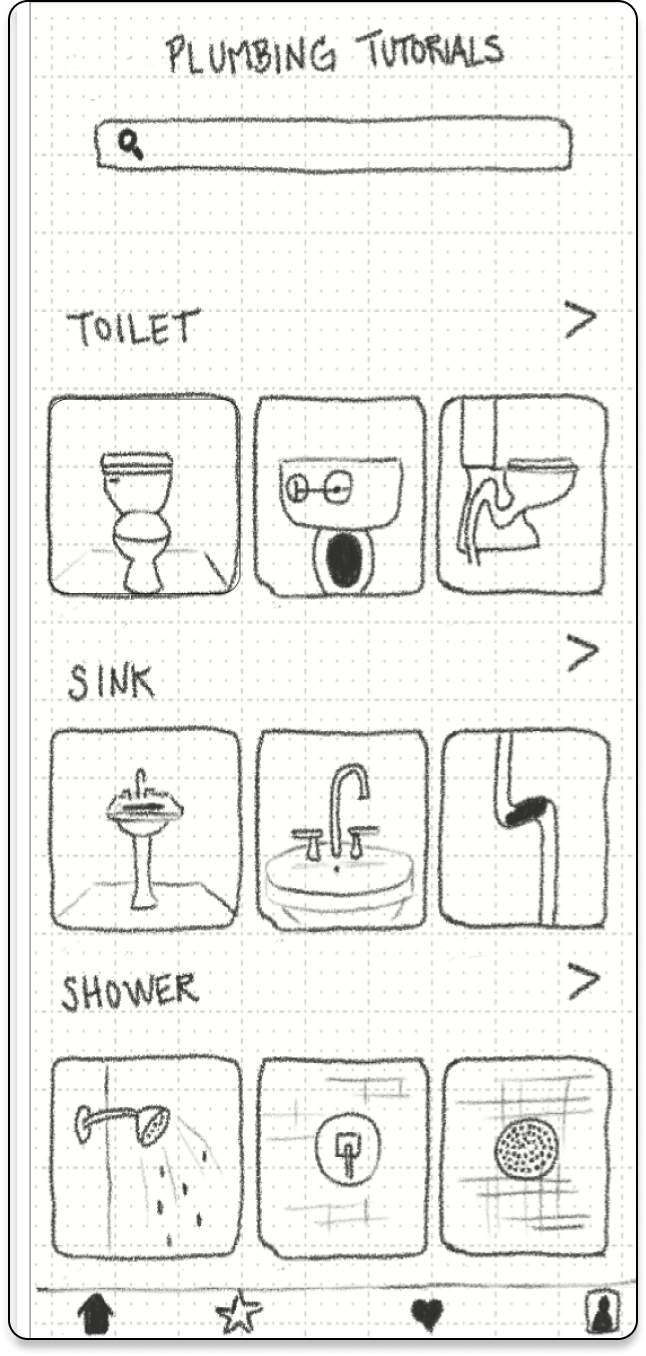 PLUMBING TUTORIALS
TOILET
SINK
SHOWER